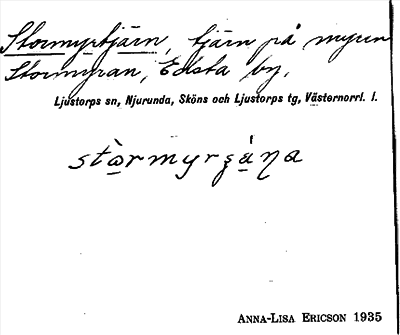 Stormyrtjärn, tjärn på myren
Stormyran, Edsta by,
Ljustorps sn, Njurunda, Sköns och Ljustorps tg, Västernorrl. l.
ANNA-LISA ERICSON 1935